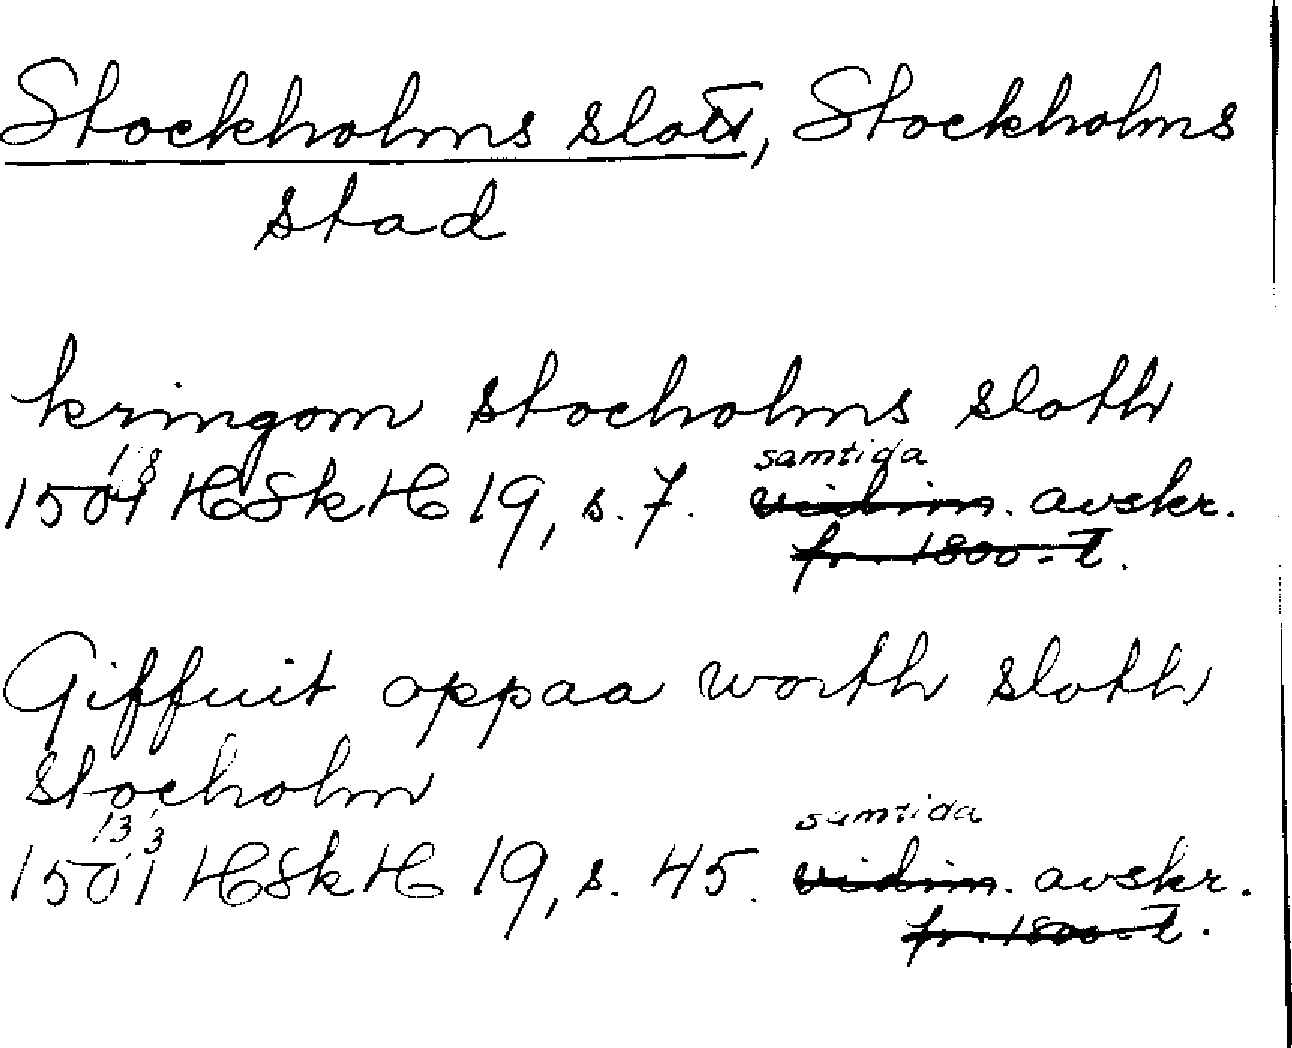 Stockholms slott, Stockholms
stad
kringom stocholms sloth
1501 1/8 HSkH 19, s. 7. samtida
vidim. avskr.
fr. 1800-t.
Giffuit oppaa worth sloth
stocholm
1501 13/3 HSkH 19, s. 45. samtida
vidim. avskr.
fr. 1800-t.